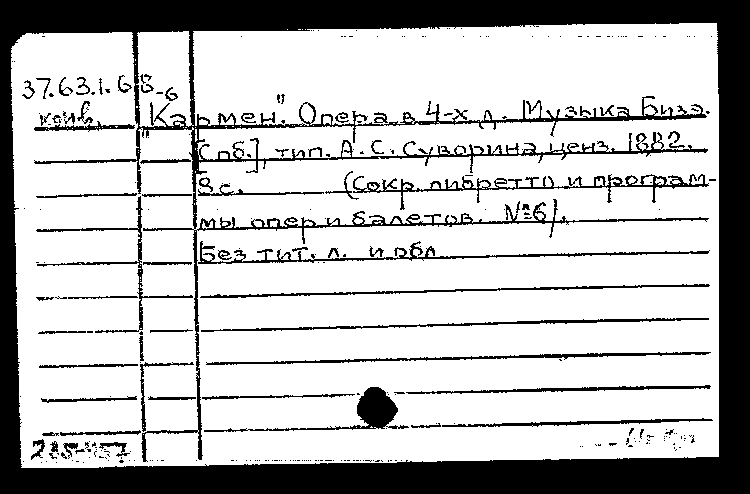 37.63.1.68-6
конв. "Кармен". Опера в 4-х д. Музыка Бизэ.
[Спб.], тип. А.С. Суворина, ценз. 1882.
8 с. (Сокр. либретто и програм-
мы опер и балетов. №6).
Без тит. л. и обл
235-457